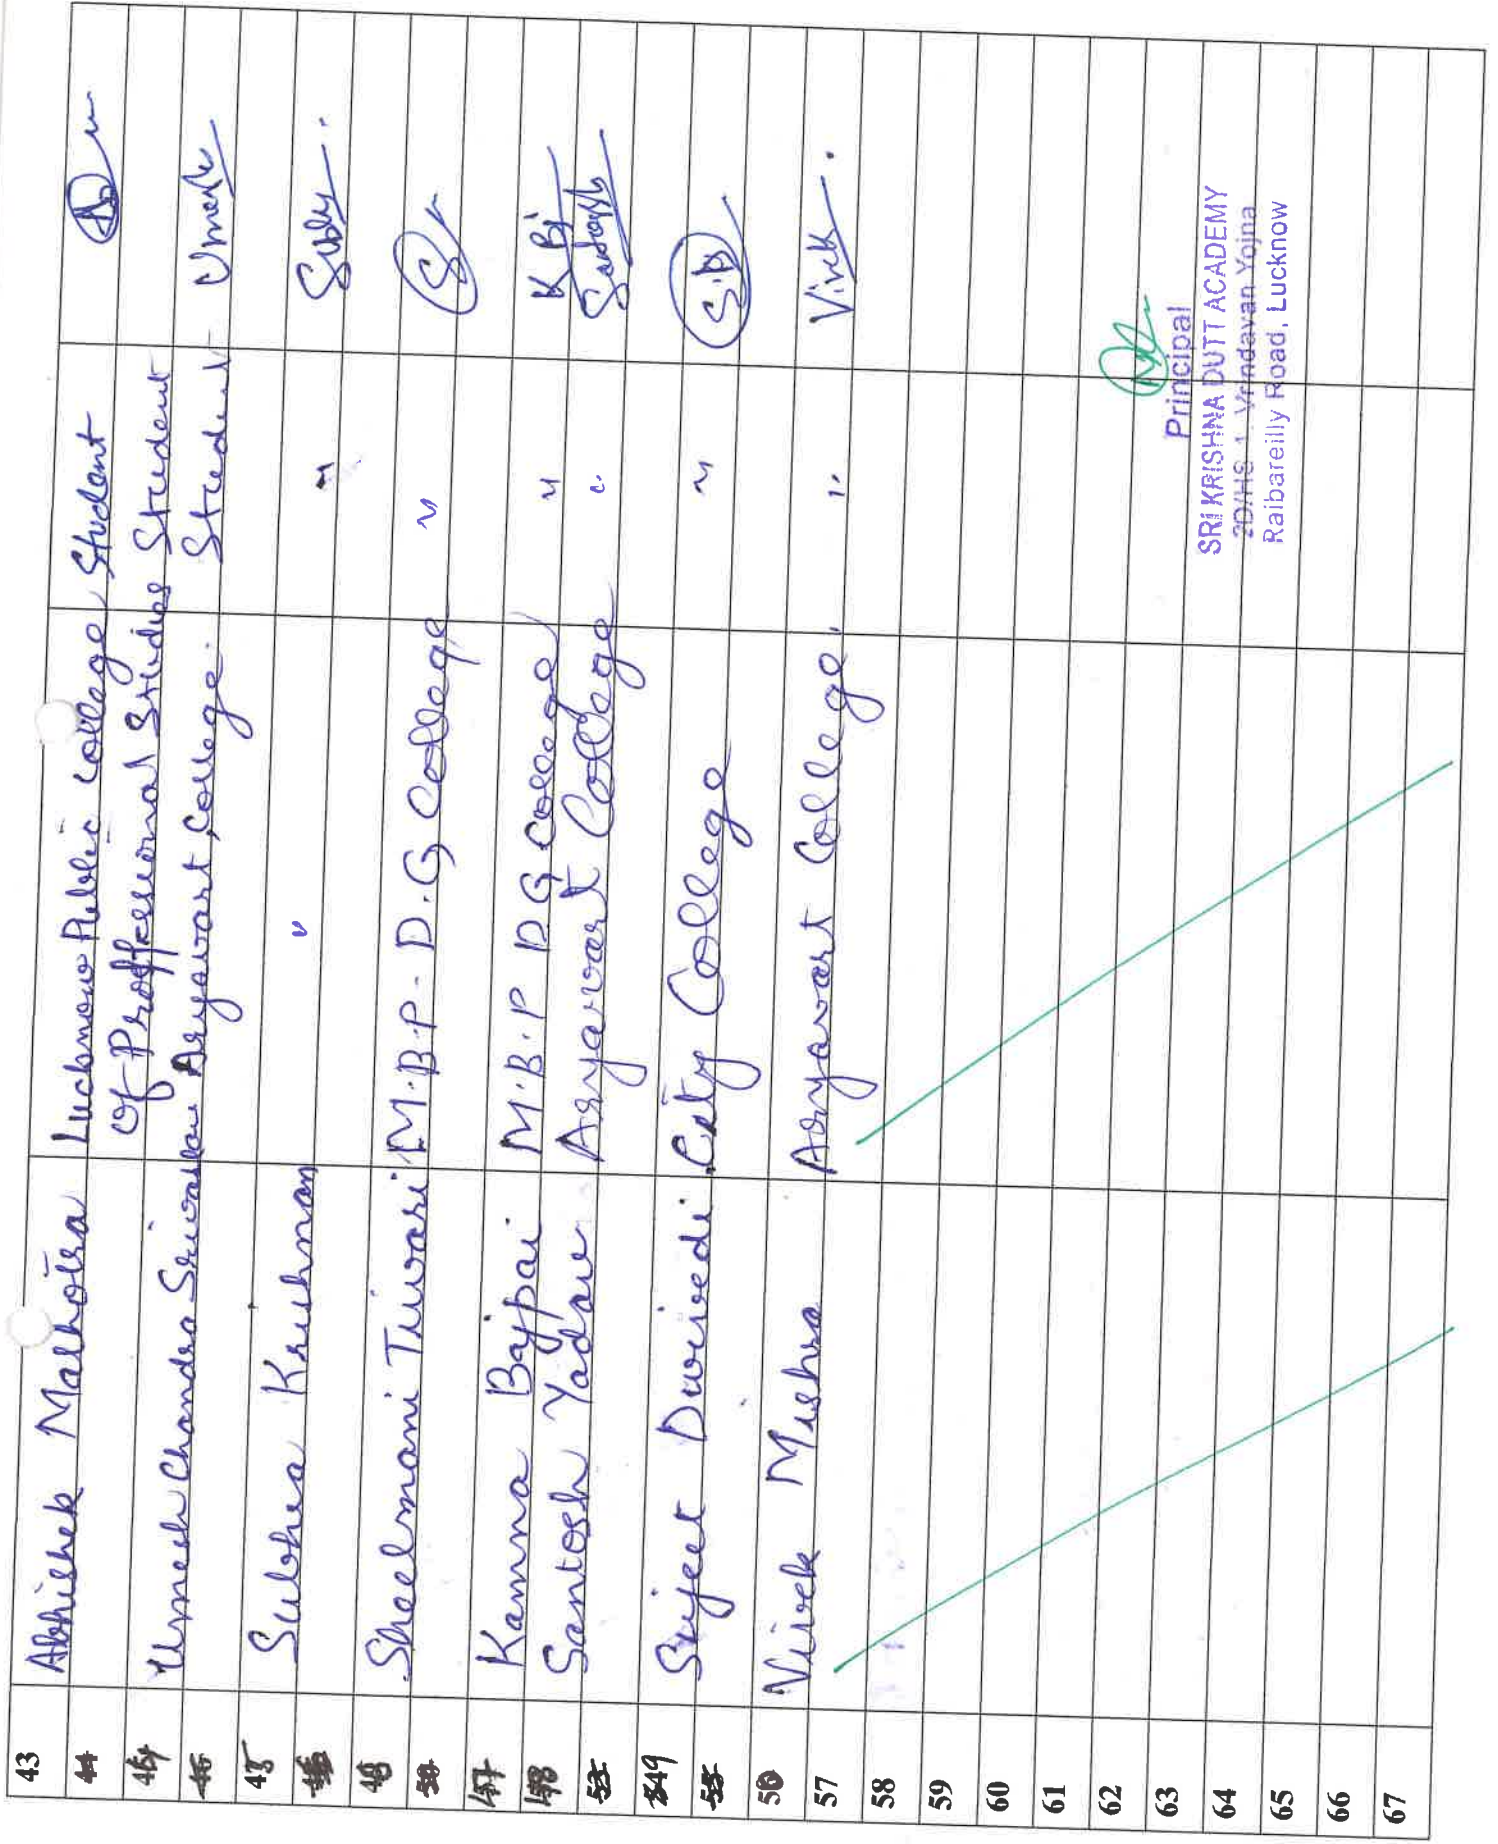 43 Abhishek Malhotra Lucknow Public College Student
of Proffessional Studies Student
44 Umesh Chandra Aryavart College. Student Umesh
45 Subhra Krishnan
Sheelmani Tiwari M.B.P. D.G College
47 Kamna Bajpai M.B.P D G College K Bj
48 Santosh Yadav Aryavart College Santosh
49 Srijeet Dwivedi City College S.D
50 Vivek Mishra Aryavart College Vivek
57
58
59
60
61
62
63
64
65
66
67
Principal
SRI KRISHNA DUTT ACADEMY
2D/HS 1, Vrindavan Yojna
Raibareilly Road, Lucknow